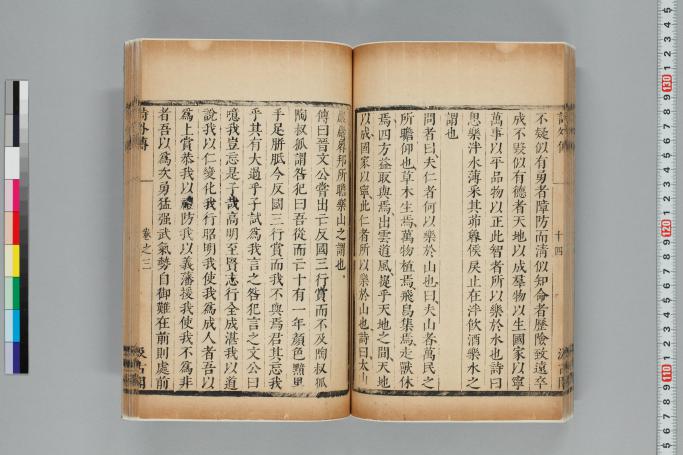 詩外傳 十四 汲古閣
不疑似有勇者障防而清似知命者歷險致遠卒
成不毀似有德者天地以成羣物以生國家以寧
萬事以平品物以正此智者所以樂於水也詩曰
思樂泮水薄采其茆魯侯戾止在泮飲酒樂水之
謂也
問者曰夫仁者何以樂於山也曰夫山者萬民之
所瞻仰也草木生焉萬物植焉飛鳥集焉走獸休
焉四方益取與焉出雲道風嵸乎天地之間天地
以成國家以寧此仁者所以樂於山也詩曰太山
巖巖魯邦所瞻樂山之謂也
傳曰晉文公嘗出亡反國三行賞而不及陶叔狐
陶叔狐謂咎犯曰吾從而亡十有一年顏色黯黑
手足胼胝今反國三行賞而我不與焉君其忘我
乎其有大過乎子試爲我言之咎犯言之文公曰
噫我豈忘是子哉高明至賢志行全成湛我以道
說我以仁變化我行昭明我使我爲成人者吾以
爲上賞恭我以禮防我以義藩援我使我不爲非
者吾以爲次勇猛强武氣勢自御難在前則處前
詩外傳 卷之三 汲古閣